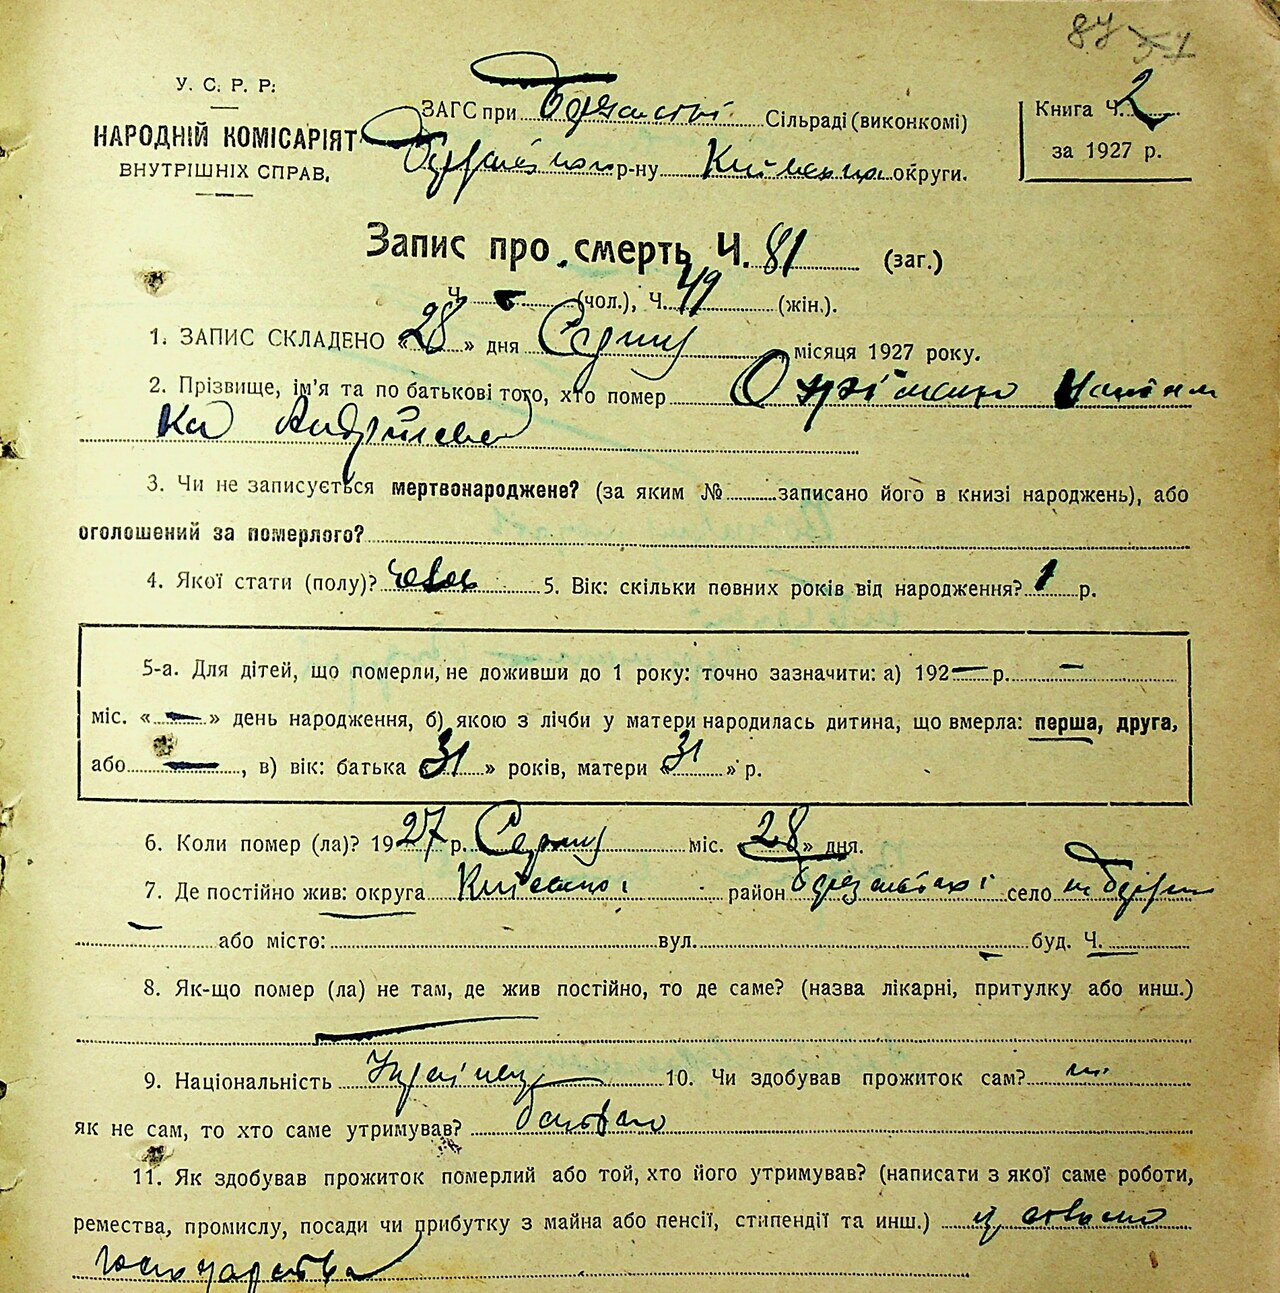 87 51
У. С. Р. Р.
НАРОДНІЙ КОМІСАРІЯТ
ВНУТРІШНІХ СПРАВ.
ЗАГС при Сільраді (виконкомі)
р-ну округи.
Книга Ч. 2
за 1927 р.
Запис про смерть Ч. 81 (заг.)
Ч. (чол.), Ч. 49 (жін.).
1. ЗАПИС СКЛАДЕНО «28» дня Серпня місяця 1927 року.
2. Прізвище, ім'я та по батькові того, хто помер
ка Андріївна
3. Чи не записується мертвонароджене? (за яким № записано його в книзі народжень), або
оголошений за померлого?
4. Якої стати (полу)? 5. Вік: скільки повних років від народження? 1 р.
5-а. Для дітей, що померли, не доживши до 1 року: точно зазначити: а) 192— р. —
міс. «—» день народження, б) якою з лічби у матери народилась дитина, що вмерла: перша, друга,
або —, в) вік: батька «31» років, матери «31» р.
6. Коли помер (ла)? 1927 р. Серпня міс. «28» дня.
7. Де постійно жив: округа район село
або місто: вул. буд. Ч.
8. Як-що помер (ла) не там, де жив постійно, то де саме? (назва лікарні, притулку або инш.)
9. Національність 10. Чи здобував прожиток сам? ні
як не сам, то хто саме утримував? батько
11. Як здобував прожиток померлий або той, хто його утримував? (написати з якої саме роботи,
ремества, промислу, посади чи прибутку з майна або пенсії, стипендії та инш.)
господарства